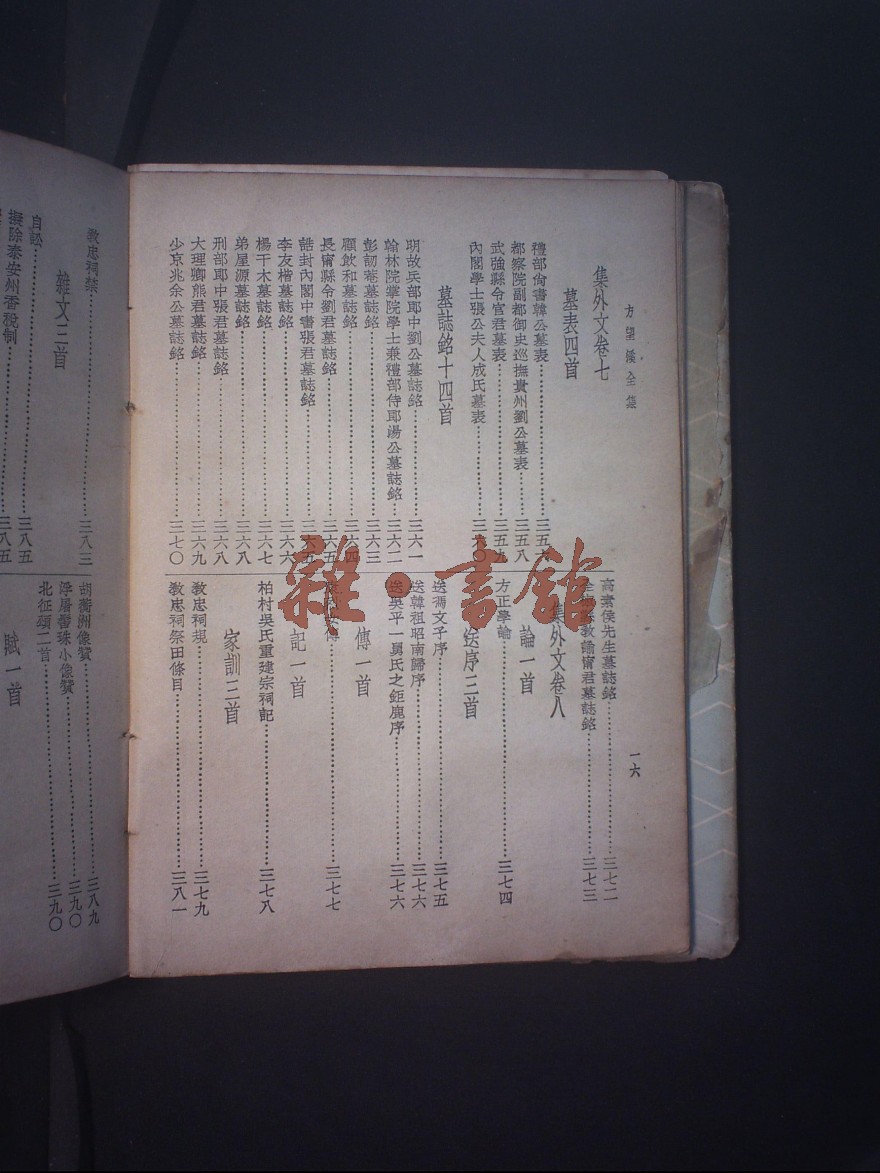 方望溪全集
一六
集外文卷七
墓表四首
禮部尙書韓公墓表…………三五六
都察院副都御史巡撫貴州劉公墓表…………三五八
武強縣令官君墓表…………三五九
內閣學士張公夫人成氏墓表…………三六〇
墓誌銘十四首
明故兵部郎中劉公墓誌銘…………三六一
翰林院掌院學士兼禮部侍郎湯公墓誌銘…………三六二
彭訒菴墓誌銘…………三六三
顧飮和墓誌銘…………三六四
長甯縣令劉君墓誌銘…………三六五
誥封內閣中書張君墓誌銘…………三六五
李友楷墓誌銘…………三六六
楊干木墓誌銘…………三六七
弟屋源墓誌銘…………三六八
刑部郎中張君墓誌銘…………三六八
大理卿熊君墓誌銘…………三六九
少京兆余公墓誌銘…………三七〇
高素侯先生墓誌銘…………三七二
教諭甯君墓誌銘…………三七三
集外文卷八
論一首
方正學論…………三七四
送序三首
送馮文子序…………三七五
送韓祖昭南歸序…………三七六
送吳平一舅氏之鉅鹿序…………三七六
傳一首
…………三七七
記一首
柏村吳氏重建宗祠記…………三七八
家訓三首
敎忠祠規…………三七九
敎忠祠祭田條目…………三八一
敎忠祠禁…………三八三
雜文三首
自訟…………三八五
擬除泰安州香稅制…………三八五
胡蘅洲像贊…………三八九
浮屠髻珠小像贊…………三九〇
北征頌二首…………三九〇
賦一首
雜·書館